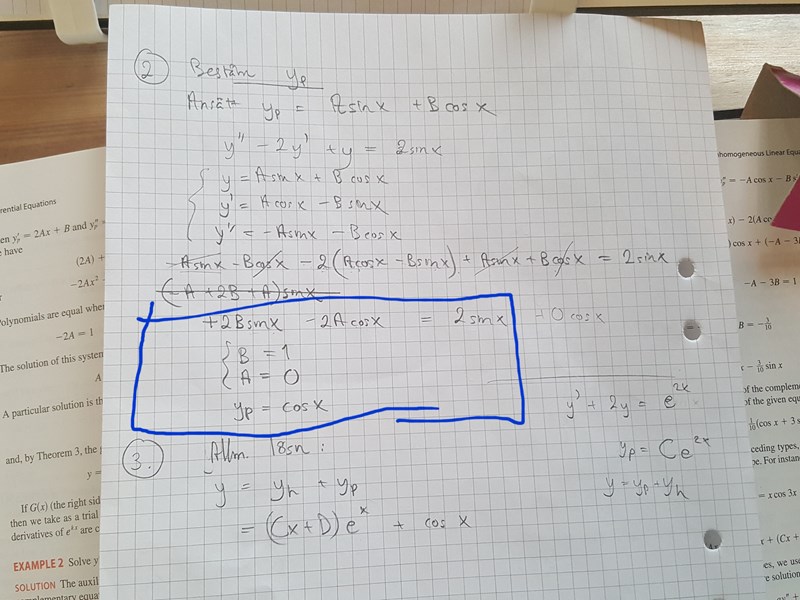 ② Bestäm yp
Ansätt yp = A sin x + B cos x
y'' - 2y' + y = 2 sin x
y = A sin x + B cos x
y' = A cos x - B sin x
y'' = -A sin x - B cos x
-A sin x - B cos x - 2(A cos x - B sin x) + A sin x + B cos x = 2 sin x
(-A + 2B + A) sin x
+2B sin x - 2A cos x = 2 sin x + 0 cos x
B = 1
A = 0
yp = cos x
③. Allm. lösn:
y = yh + yp
= (Cx + D)e^x + cos x
y' + 2y = e^2x
yp = Ce^2x
y = yp + yh
rential Equations
en y'p = 2Ax + B and y''p
have
(2A) +
-2Ax²
Polynomials are equal when
-2A = 1
The solution of this system
A
A particular solution is th
and, by Theorem 3, the
y =
If G(x) (the right sid
then we take as a trial
derivatives of e^kx are c
EXAMPLE 2 Solve y
SOLUTION The auxil
homogeneous Linear Equa
= -A cos x - B
x) - 2(A co
) cos x + (-A - 3
-A - 3B = 1
B = -3/10
- 3/10 sin x
of the complem
of the given equ
1/10 (cos x + 3 s
ceding types,
e. For instan
= x cos 3x
x + (Cx +
es, we us
e solution